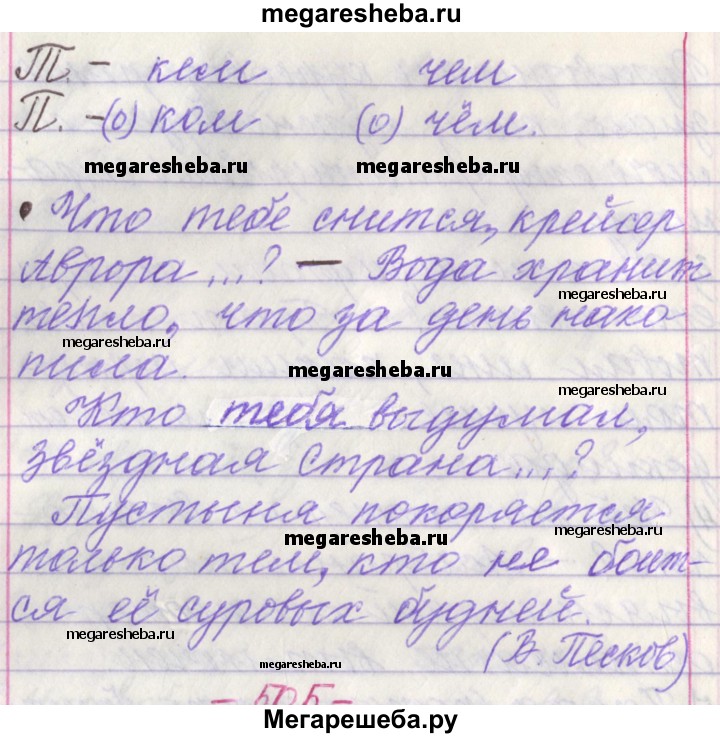 megaresheba.ru
Т. - кем чем
П. -(о) ком (о) чём.
megaresheba.ru megaresheba.ru
• Что тебе снится, крейсер
Аврора...? — Вода хранит
megaresheba.ru
тепло, что за день нако
megaresheba.ru
пила.
megaresheba.ru
megaresheba.ru
Кто тебя выдумал,
звёздная страна...?
Пустыня покоряется
megaresheba.ru
megaresheba.ru
только тем, кто не боит-
ся её суровых будней.
megaresheba.ru
(В. Песков)
megaresheba.ru
- 505 -
Мегарешеба.ру